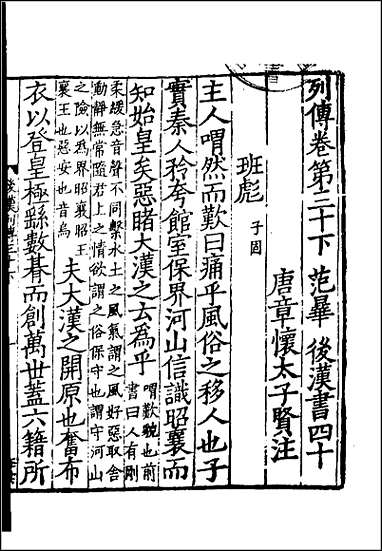 列傳卷第三十下 范曄 後漢書四十
唐章懷太子賢注
班彪 子固
主人喟然而歎曰痛乎風俗之移人也子
實秦人矜夸館室保界河山信識昭襄而
知始皇矣惡睹大漢之云為乎 喟歎貌也前書曰人有剛
柔緩急音聲不同繫水土之風氣謂之風好惡取舍
動靜無常隨君上之情欲謂之俗保守也謂守河山
之險以為界昭襄昭王襄王也惡安也音烏 夫大漢之開原也奮布
衣以登皇極繇數朞而創萬世蓋六籍所